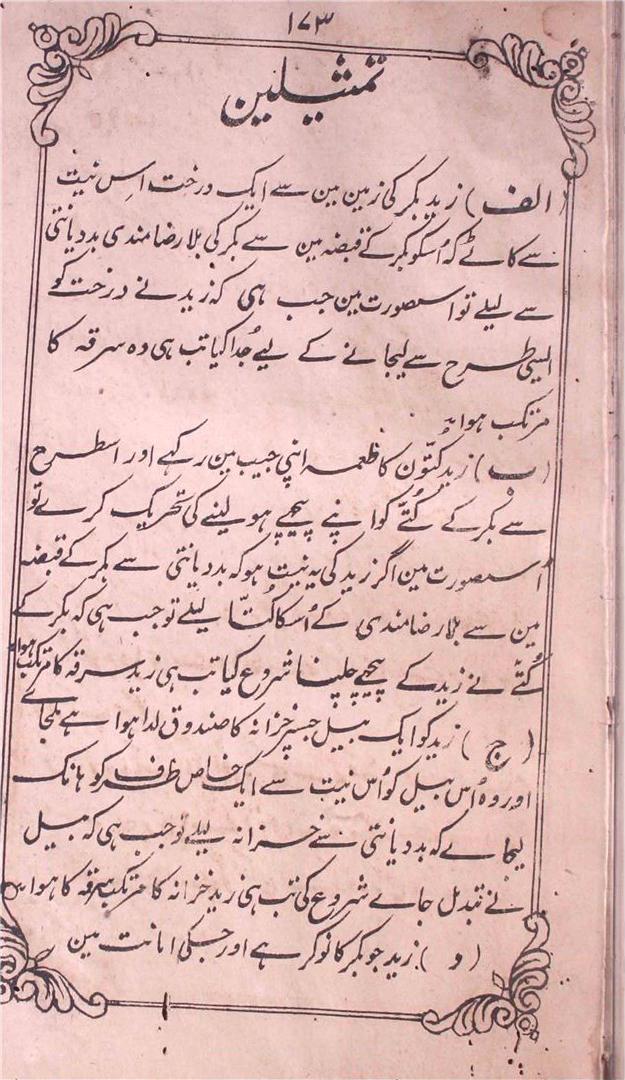 ۱۷۳
تمثیلین
(الف) زید بکر کی زمین مین سے ایک درخت اس نیت
سے کاٹے کہ اُسکو بکر کے قبضہ مین سے بکر کی بلا رضامندی بددیانتی
سے لیلے تو اسصورت مین جب ہی کہ زید نے درخت کو
ایسی طرح سے لیجانے کے لیے جُدا کیا تب ہی وہ سرقہ کا
مرتکب ہوا۔
(ب) زید کتّون کا طعمہ اپنی جیب مین رکھے اور اسطرح
سے بکر کے کُتّے کو اپنے پیچھے ہو لینے کی تحریک کرے تو
اُسصورت مین اگر زید کی یہ نیت ہو کہ بددیانتی سے بکر کے قبضہ
مین سے بلا رضامندی کے اُسکا کُتّا لیلے تو جب ہی کہ بکر کے
کُتّے نے زید کے پیچھے چلنا شروع کیا تب ہی زید سرقہ کا مرتکب ہوا۔
(ج) زید کو ایک بیل جسپر خزانہ کا صندوق لدا ہوا ہے ملجاے
اور وہ اُس بیل کو اُس نیت سے ایک خاص طرف کو ہانک
لیجاے کہ بددیانتی سے خزانہ لیلے تو جب ہی کہ بیل
نے تبدل جاے شروع کی تب ہی زید خزانہ کا مرتکب سرقہ کا ہوا۔
(و) زید جو بکر کا نوکر ہے اور جسکی امانت مین